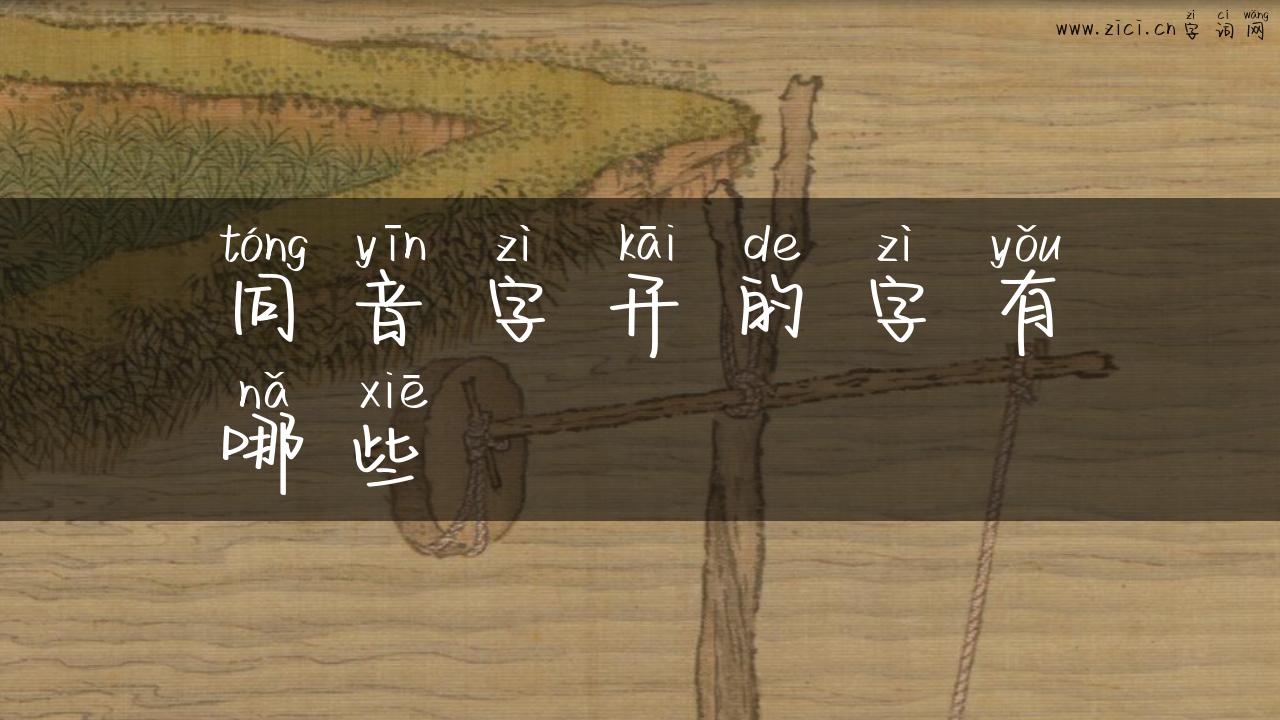 zì cí wǎng
www.zici.cn 字词网
tóng yīn zì kāi de zì yǒu
同音字开的字有
nǎ xiē
哪些